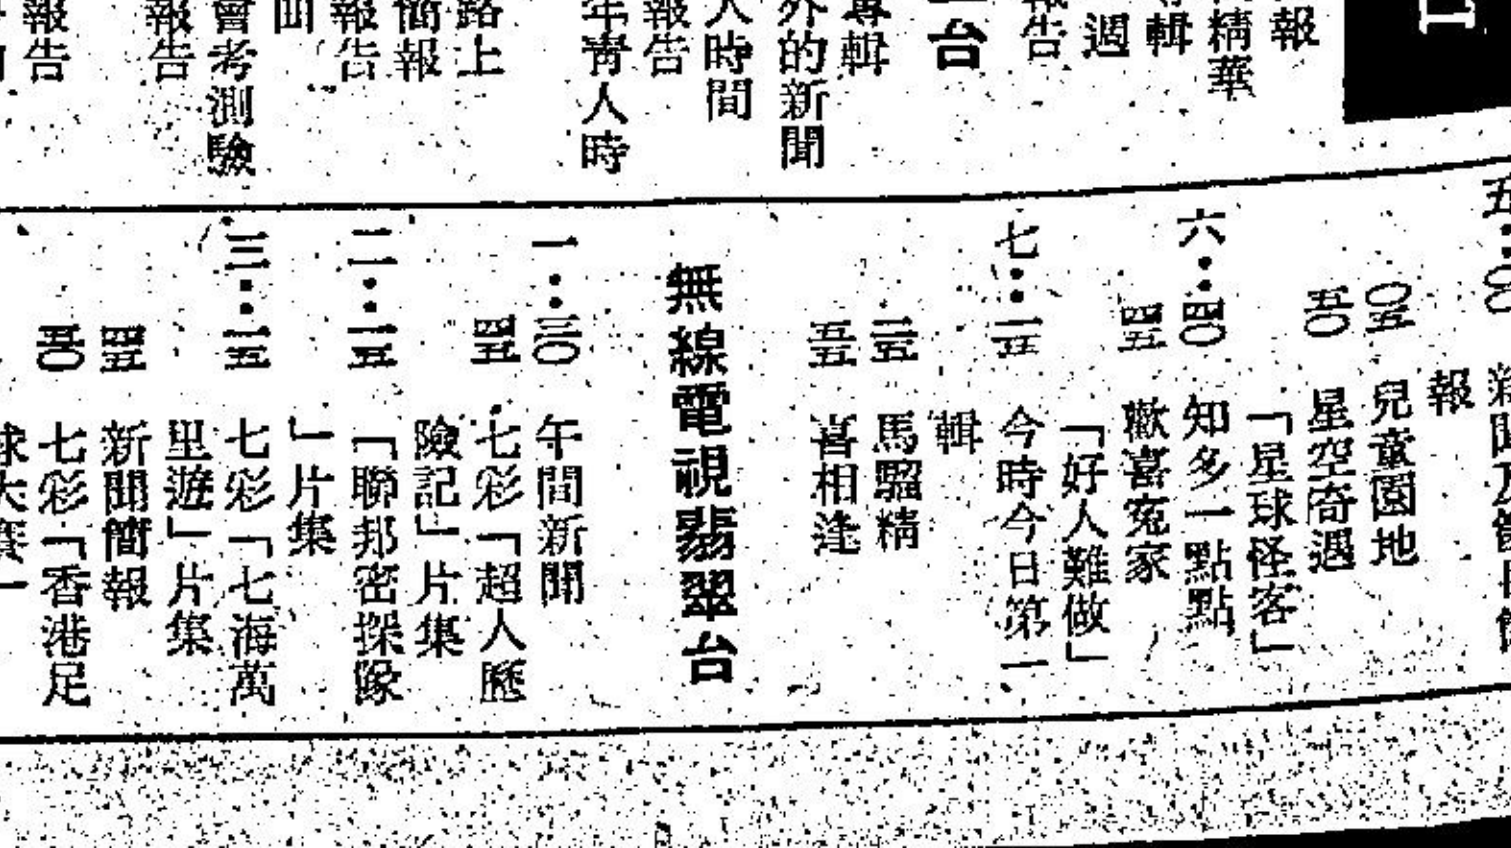 報
精華
專輯
週
報告
台
專輯
外的新聞
人時間
報告
年青人時
路上
簡報
報告
會考測驗
報告
報告
五：〇〇 新聞及
報
〇五 兒童園地
五〇 星空奇遇
「星球怪客」
六：四〇 知多一點點
四五 歡喜冤家
「好人難做」
七：一五 今時今日第一
輯
二五 馬騮精
五五 喜相逢
無線電視翡翠台
一：三〇 午間新聞
四五 七彩「超人歷
險記」片集
二：一五 「聯邦密探隊
」片集
三：一五 七彩「七海萬
里遊」片集
四五 新聞簡報
五〇 七彩「香港足
球大賽一